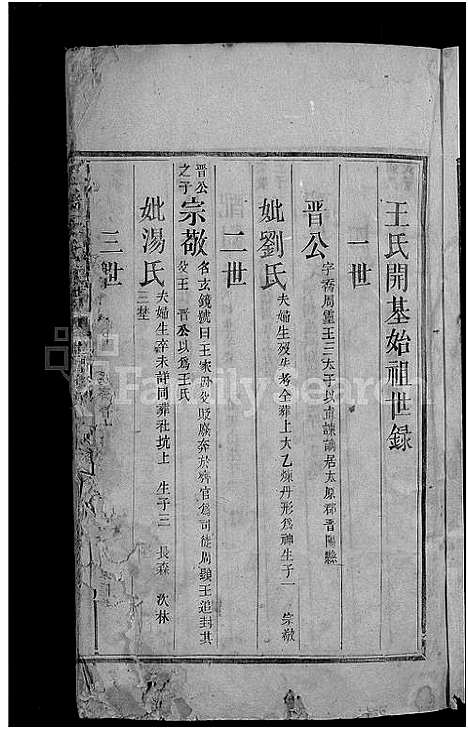 王氏開基始祖世録
一世
晋公
字喬周靈王三太子以直諫謫居太原郡晋陽縣
妣劉氏
夫婦生殁生考全葬上大乙煉丹形爲神生子一 宗敬
二世
晋公之子
宗敬
名玄鏡號曰王家因父貶廢奔於齊官爲司徒周顕王追封其
父王晋公以爲王氏
妣湯氏
夫婦生卒未詳同葬社坑上 生子三 長森 次林
三埜
三世
FamilySearch